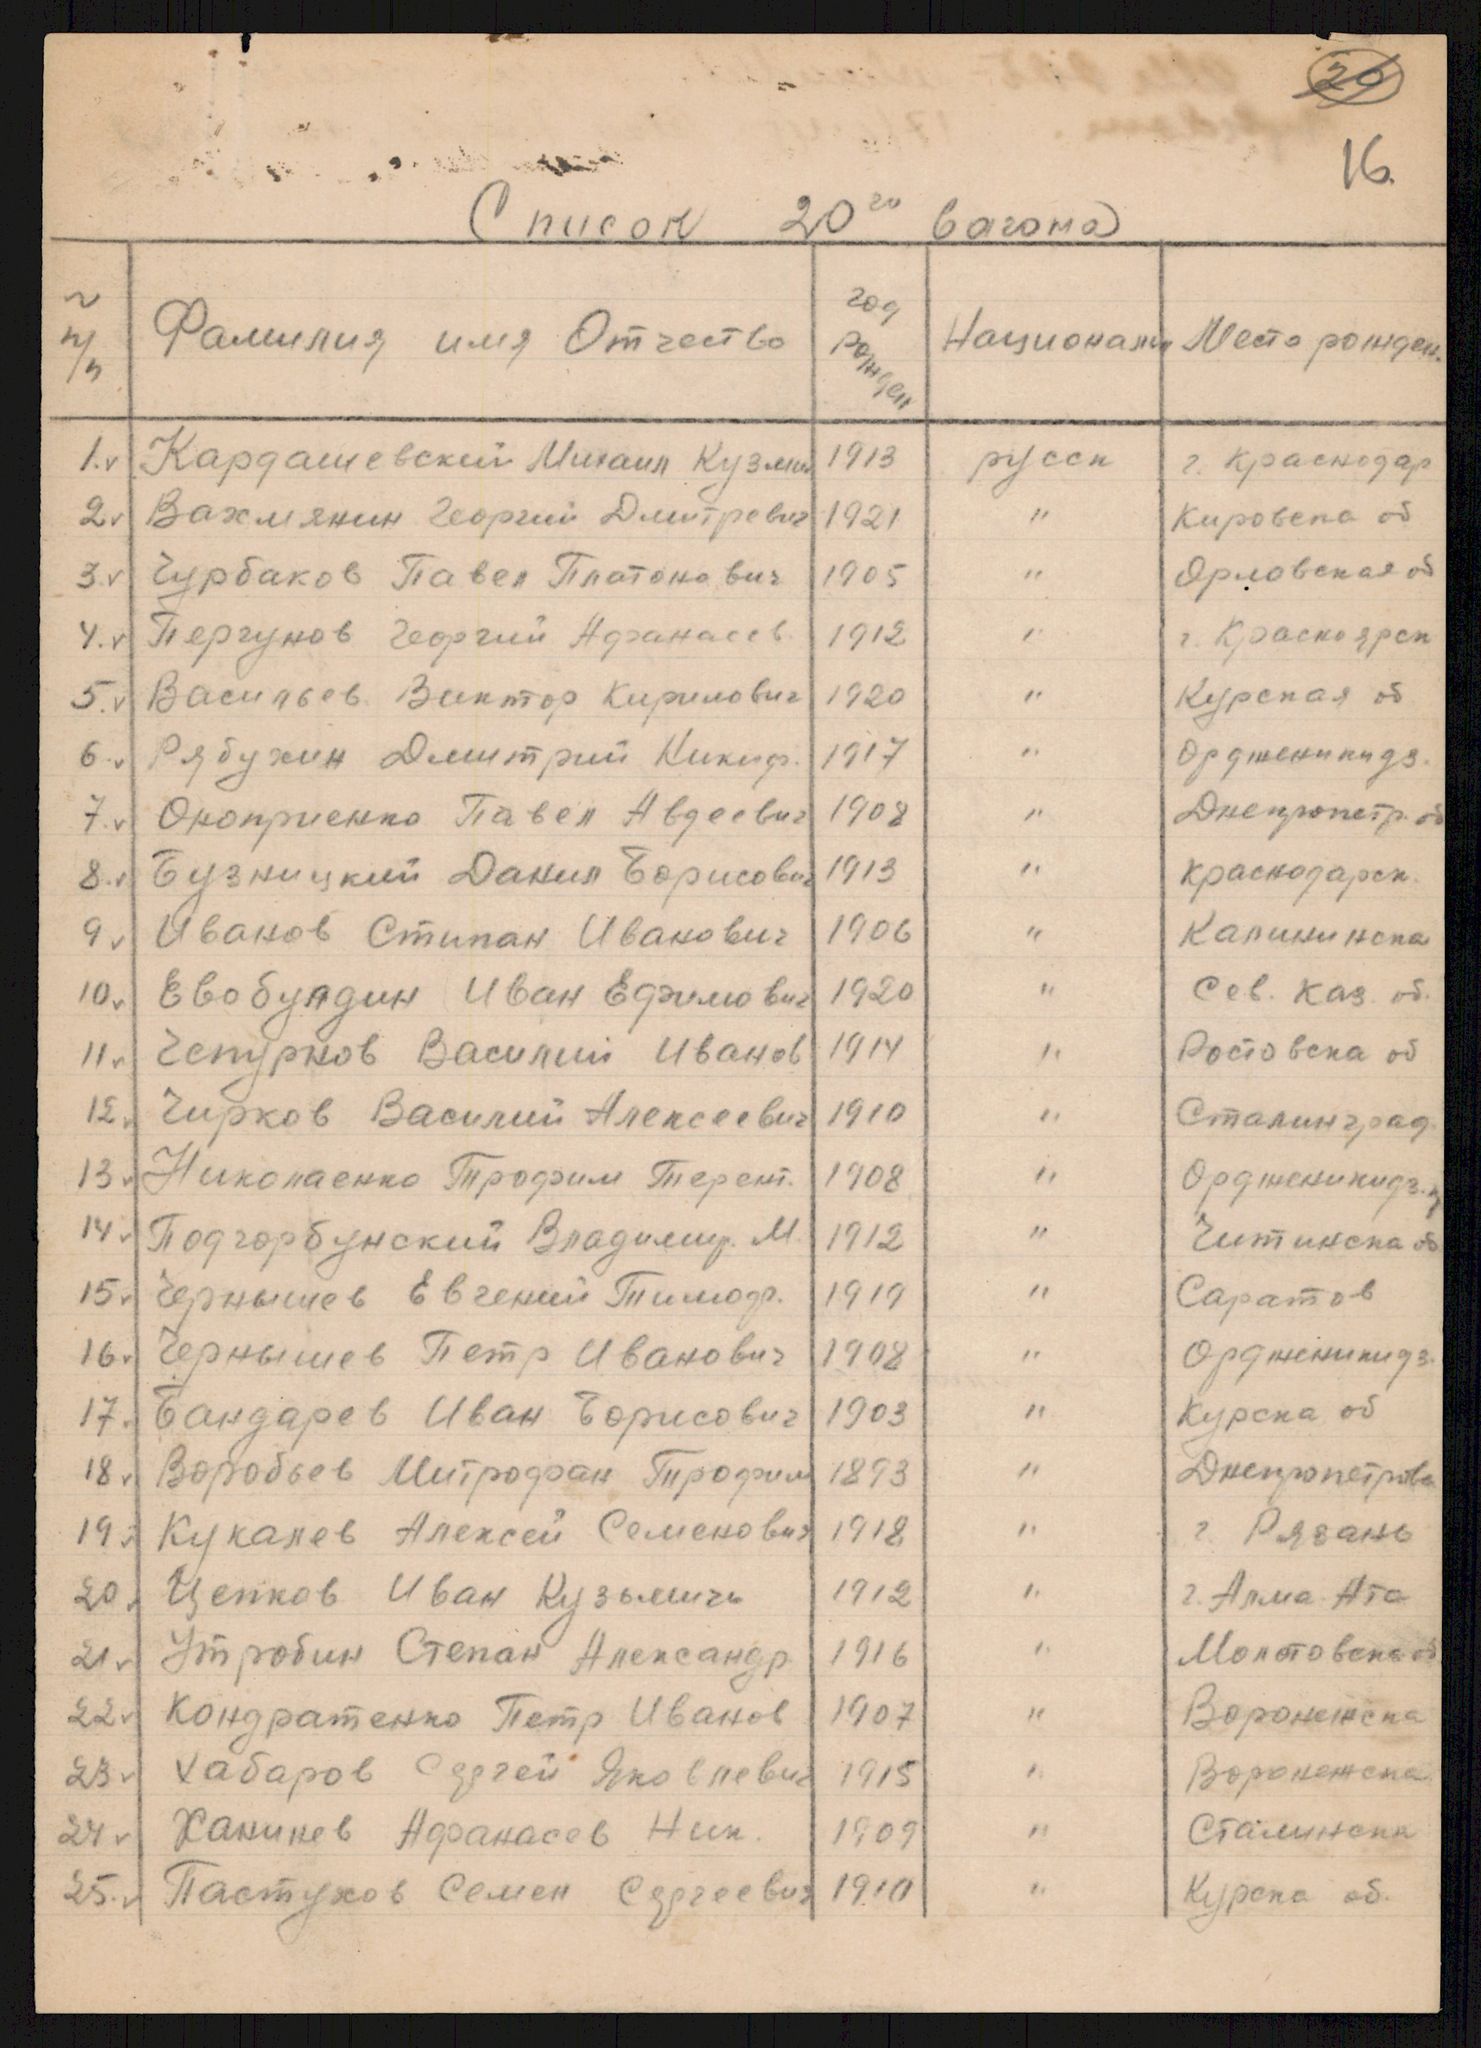 20
16.
Список 20го вагона
№ п/п Фамилия имя Отчество год рожден Националь Место рожден.
1. v Кардашевский Михаил Кузмич 1913 русск г. Краснодар
2 v Вахмянин Георгий Дмитревич 1921 " Кировска об
3. v Чурбаков Павел Платонович 1905 " Орловская об
4. v Пергунов Георгий Афанасев. 1912 " г. Красноярск
5. v Васильев Виктор Кирилович 1920 " Курская об
6. v Рябухин Дмитрий Никиф. 1917 " Ордженикидз.
7. v Оноприенко Павел Авдеевич 1908 " Днепропетр. об
8. v Бузницкий Данил Борисович 1913 " Краснодарск.
9 v Иванов Стипан Иванович 1906 " Калининска
10. v Евобулдин Иван Ефимович 1920 " Сев. Каз. об.
11. v Чепурнов Василий Иванов 1914 " Ростовска об
12. v Чирков Василий Алексеевич 1910 " Сталинград.
13. v Николаенко Трофим Терент. 1908 " Ордженикидз. к
14. v Подгорбунский Владимир. М. 1912 " Читинска об
15. v Чернышев Евгений Тимоф. 1919 " Саратов
16. v Чернышев Петр Иванович 1908 " Ордженикидз.
17. v Бандарев Иван Борисович 1903 " Курска об
18. v Воробьев Митрофан Трофим 1893 " Днепропетровс
19. v Кукалев Алексей Семенович 1918 " г. Рязань
20. v Цепков Иван Кузьмичь 1912 " г. Алма Ата
21. v Утробин Степан Александр 1916 " Молотовска об
22. v Кондратенко Петр Иванов 1907 " Воронежска
23. v Хабаров Сергей Яковлевич 1915 " Воронежска
24. v Ханинев Афанасев Ник. 1909 " Сталинска
25. v Пастухов Семен Сергеевич 1910 " Курска об.